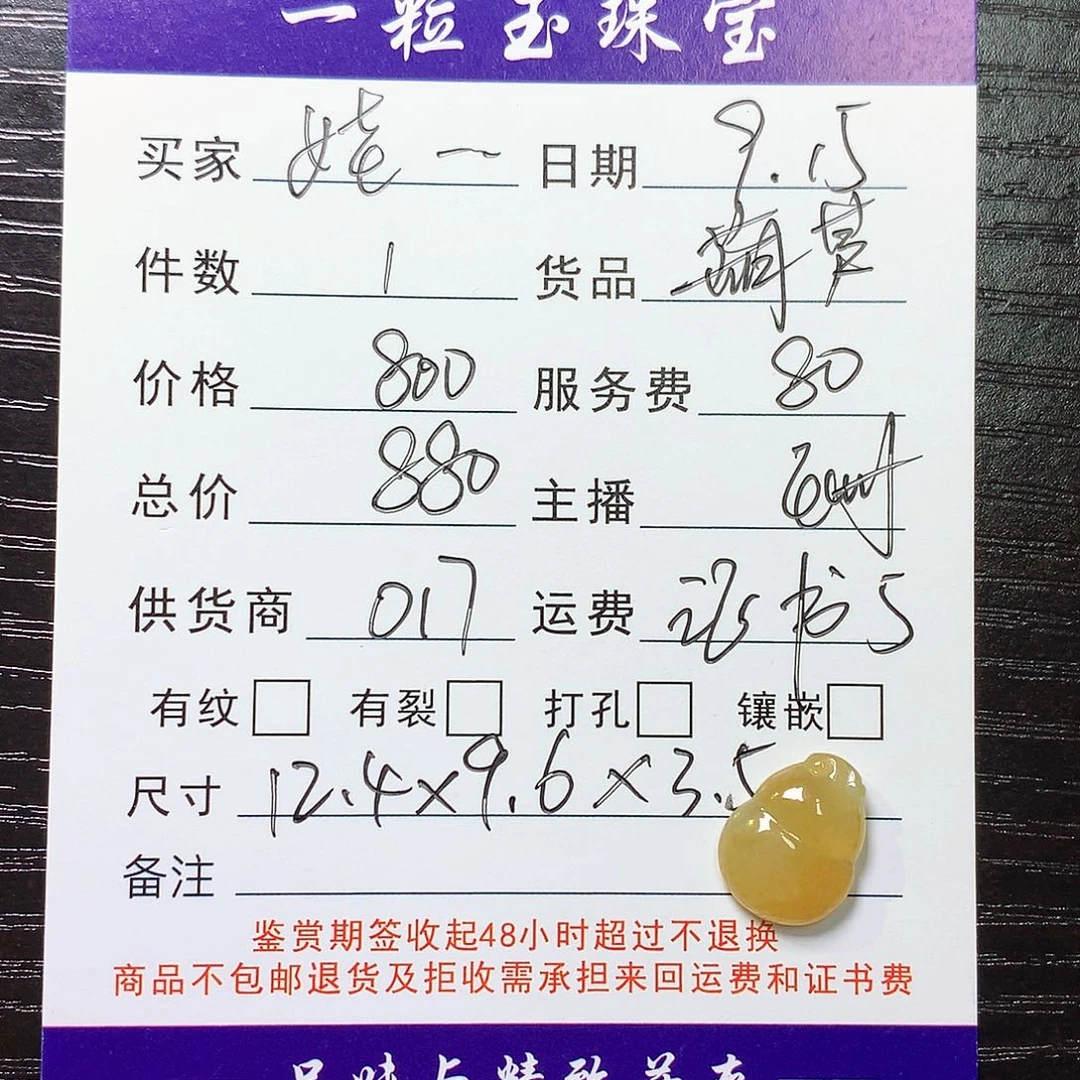 一粒玉珠宝
买家 姥一 日期 9.15
件数 1 货品 葫芦
价格 800 服务费 80
总价 880 主播
供货商 017 运费 证书5
有纹 有裂 打孔 镶嵌
尺寸 12.4×9.6×3.5
备注
鉴赏期签收起48小时超过不退换
商品不包邮退货及拒收需承担来回运费和证书费